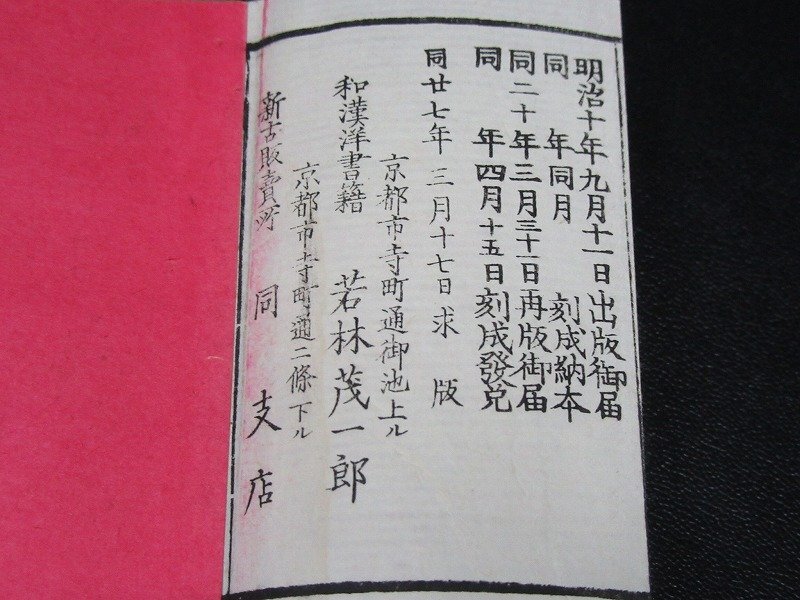 明治十年九月十一日出版御届
同　年同月　刻成納本
同二十年三月三十一日再版御届
同　年四月十五日刻成發兌
同廿七年三月十七日求版
京都市寺町通御池上ル
和漢洋書籍　若林茂一郎
京都市寺町通二條下ル
新古販賣所　同支店